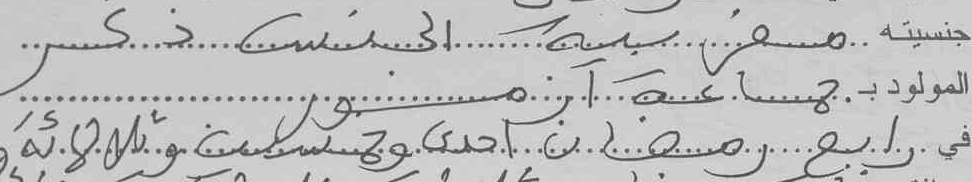 جنسيته مغربية الجنس ذكر
المولود بـ جماعة آزمور
في رابع رمضان احدى وخمسين وثلاثمائة